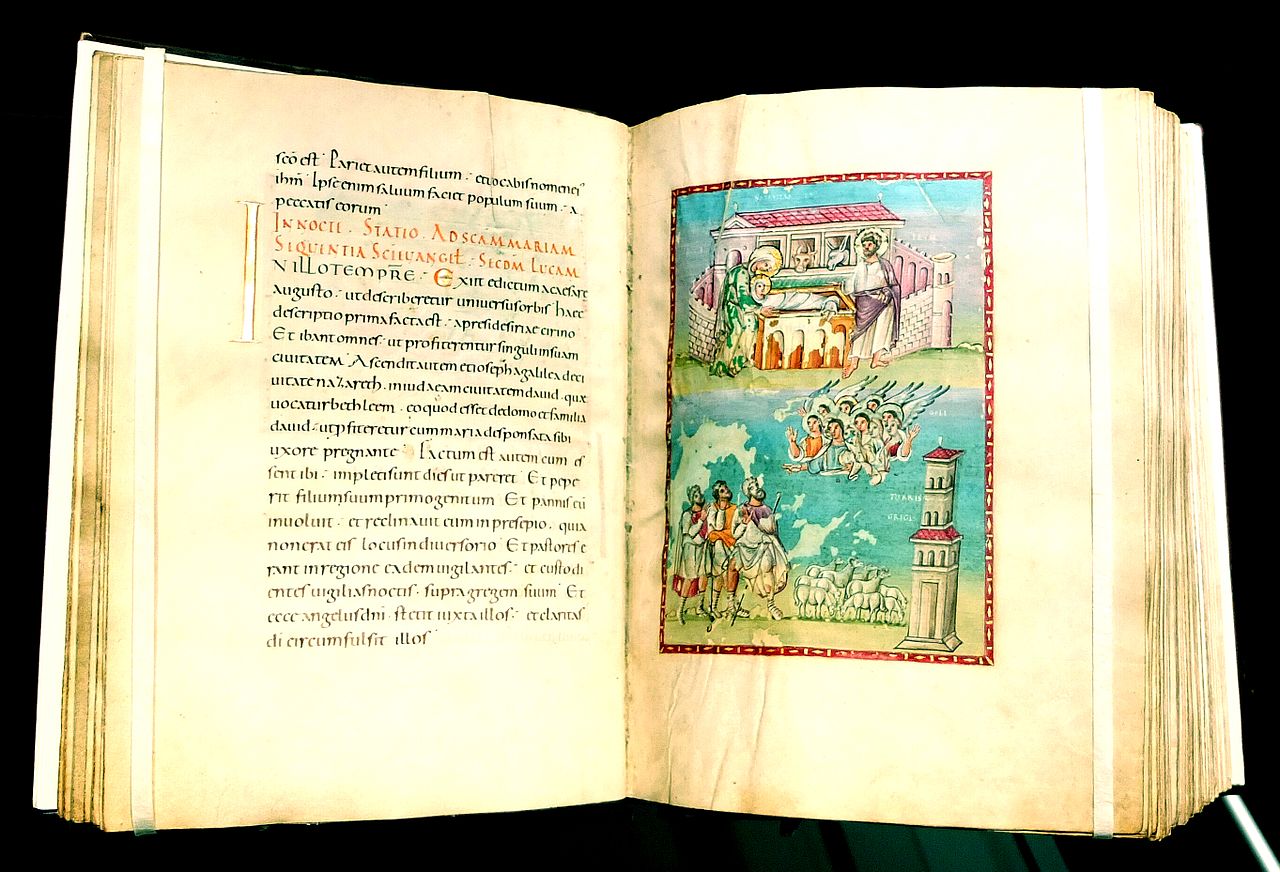 scō est. Pariet autem filium. et vocabis nomen ei'
ihm̄. Ipse enim salvum faciet populum suum. a
peccatis eorum
IN NOCTE. STATIO. AD SCAM MARIAM
SEQUENTIA SCI EVANGEŁ. SECDM LUCAM
IN ILLO TEMPRE. Exiit edictum a caesare
augusto. ut describeretur universus orbis. haec
descriptio prima facta est. a preside siriae cirino
Et ibant omnes. ut profiterentur singuli in suam
civitatem. Ascendit autem et ioseph a galilea de ci
vitate nazareth. in iudaeam civitatem david. quae
vocatur bethleem. eo quod esset de domo et familia
david. ut pfiteretur cum maria desponsata sibi
uxore pregnante. Factum est autem cum es
sent ibi. impleti sunt dies ut pareret. Et pepe
rit filium suum primogenitum. Et pannis eū
involvit. et reclinavit eum in presepio. quia
non erat eis locus in diversorio. Et pastores e
rant in regione eadem vigilantes. et custodi
entes vigilias noctis. supra gregem suum. Et
ecce angelus dn̄i. stetit iuxta illos. et claritas
di circumfulsit illos
TURRIS
GREGIS